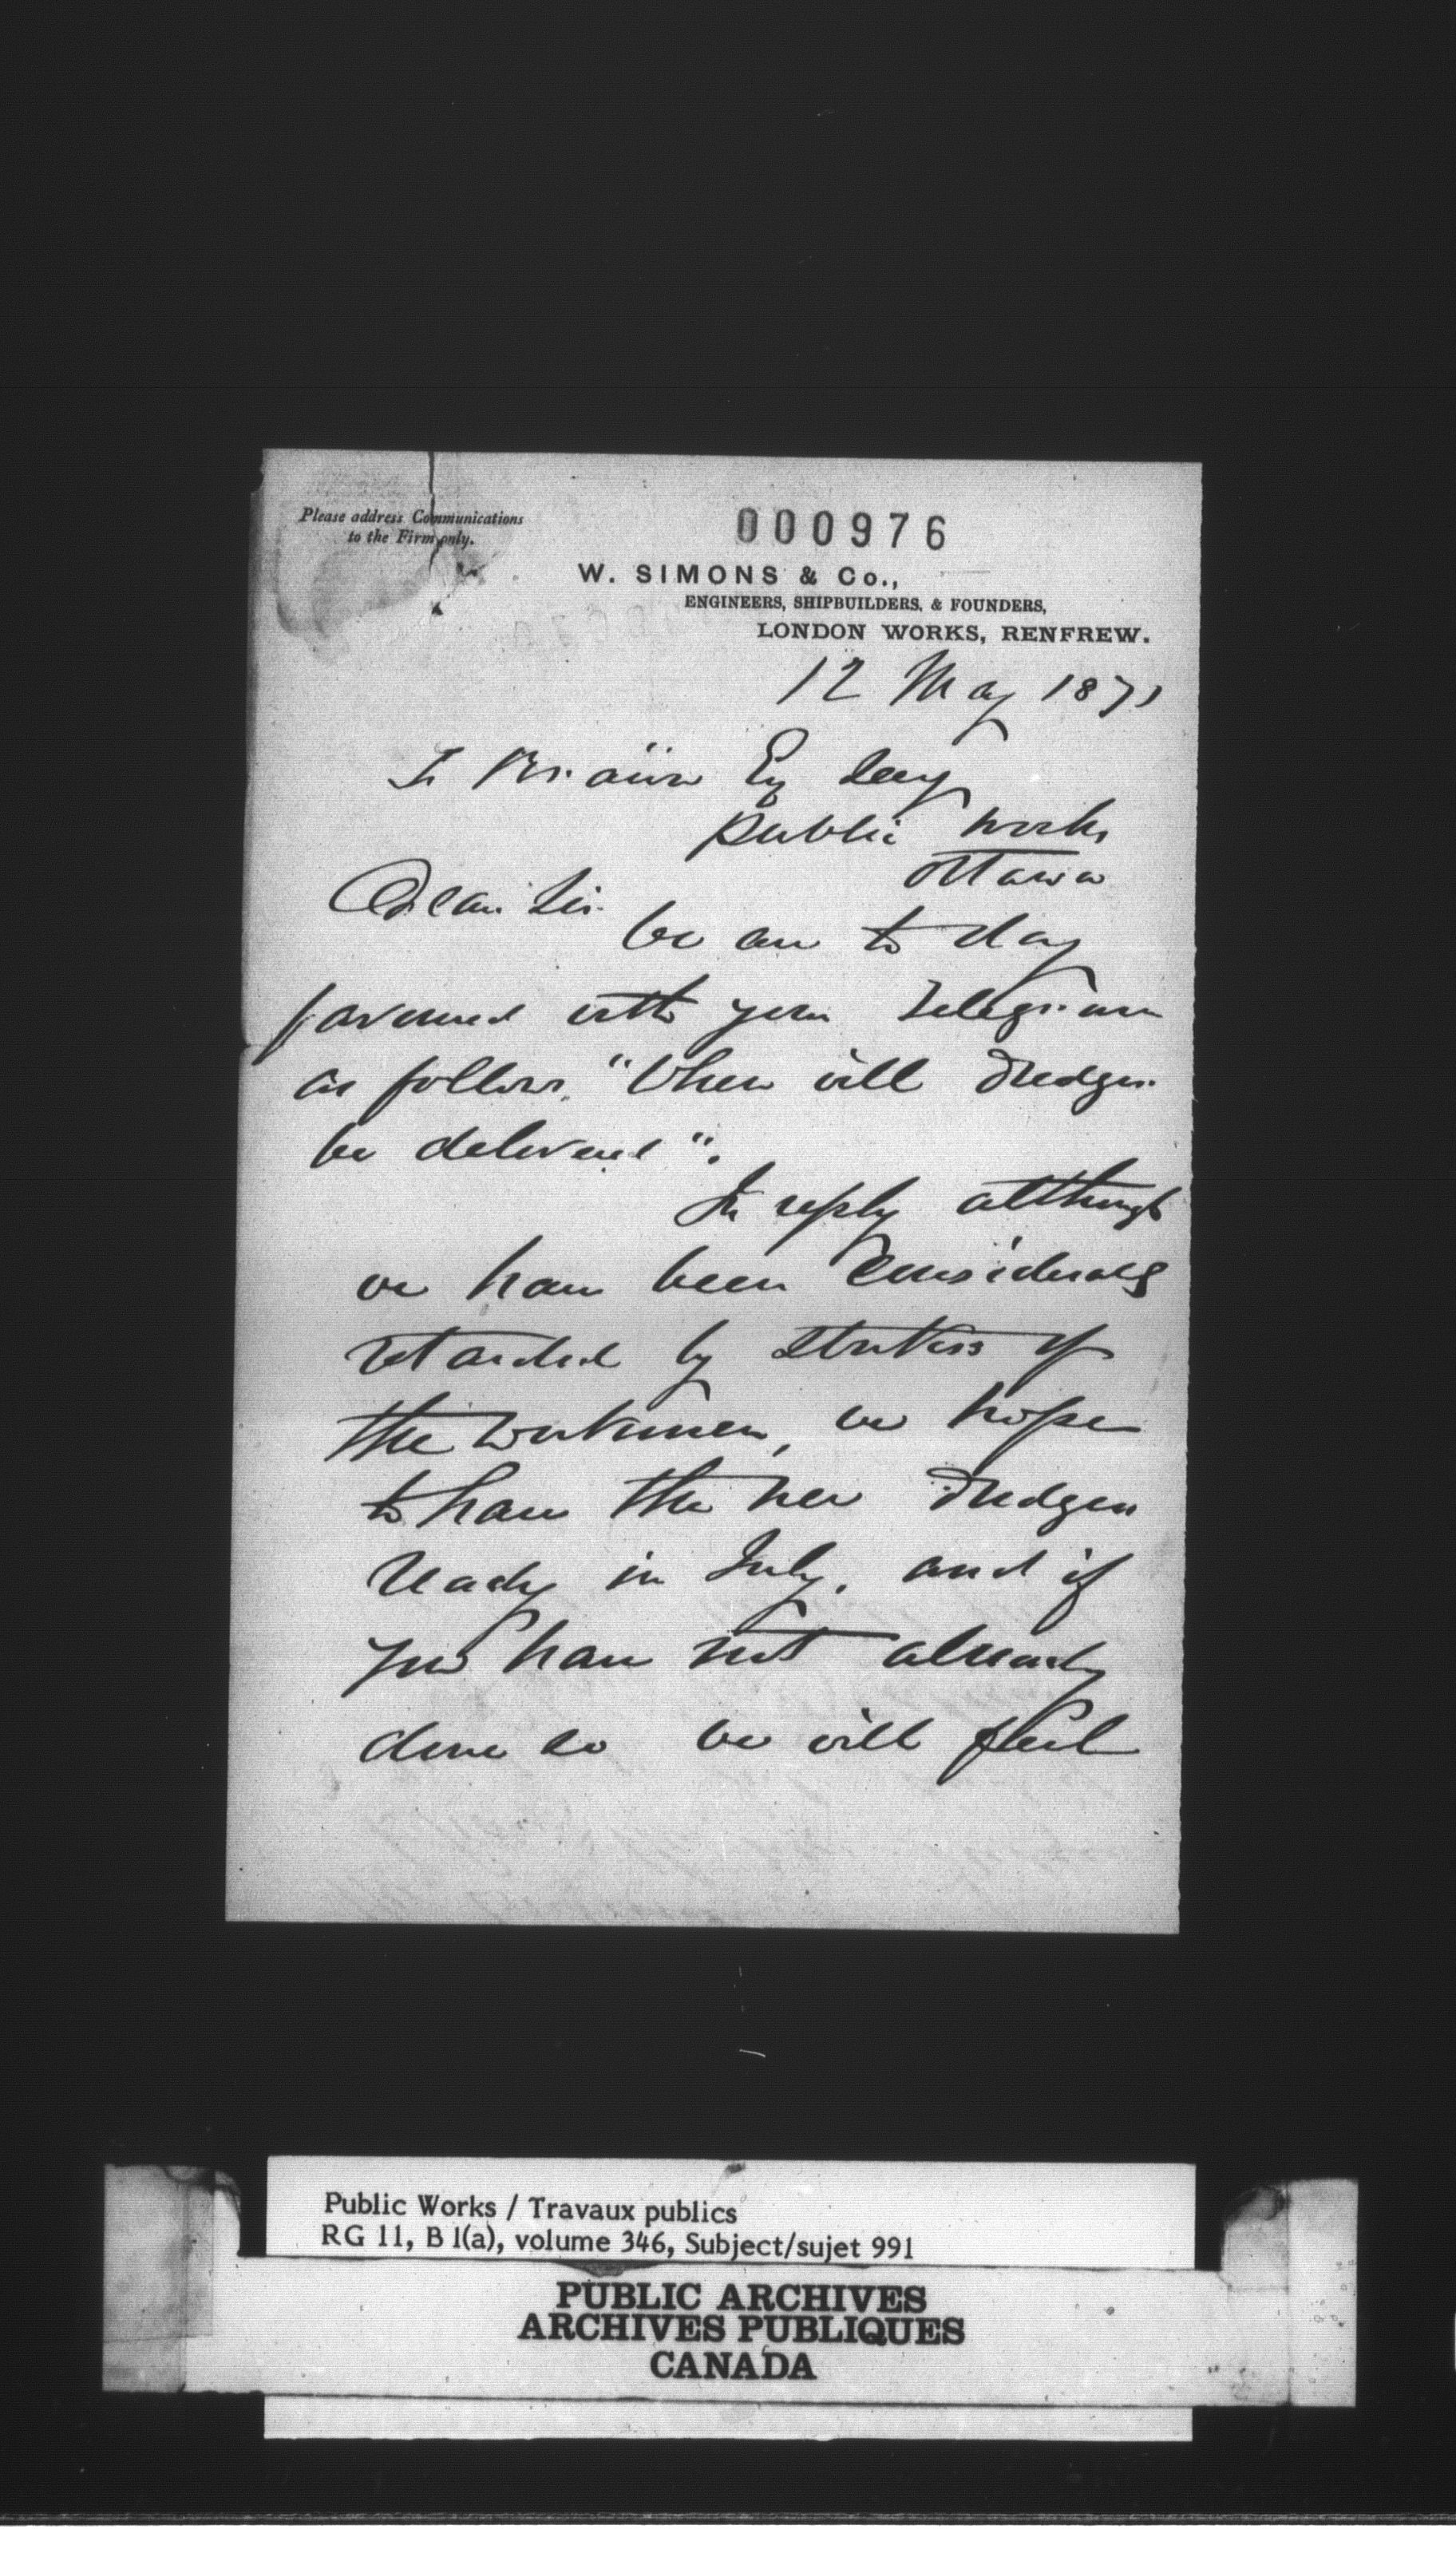 Please address Communications
to the Firm only.
000976
W. SIMONS & Co.,
ENGINEERS, SHIPBUILDERS, & FOUNDERS,
LONDON WORKS, RENFREW.
12 May 1871
F Braün Esq Secy
Public Works
Ottawa
Dear Sir
We are to day
favoured with your Telegram
as follows. "When will Dredger
be delivered".
In reply although
we have been considerably
retarded by strikes of
the workmen, we hope
to have the new Dredger
ready in July. and if
you have not already
done so we will feel
Public Works / Travaux publics
RG 11, B 1(a), volume 346, Subject/sujet 991
PUBLIC ARCHIVES
ARCHIVES PUBLIQUES
CANADA